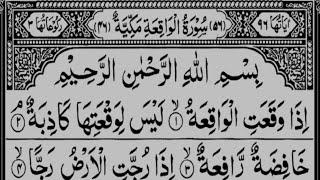 اٰیَاتُهَا ٩٦ (٥٦) سُوْرَةُ الْوَاقِعَةِ مَكِّيَّةٌ (٤٦) رُكُوْعَاتُهَا ٣
بِسْمِ اللّٰهِ الرَّحْمٰنِ الرَّحِيْمِ
اِذَا وَقَعَتِ الْوَاقِعَةُ ۙ‏﴿١﴾ لَيْسَ لِوَقْعَتِهَا كَاذِبَةٌ ۘ‏﴿٢﴾
خَافِضَةٌ رَّافِعَةٌ ۙ‏﴿٣﴾ اِذَا رُجَّتِ الْاَرْضُ رَجًّا ۙ‏﴿٤﴾